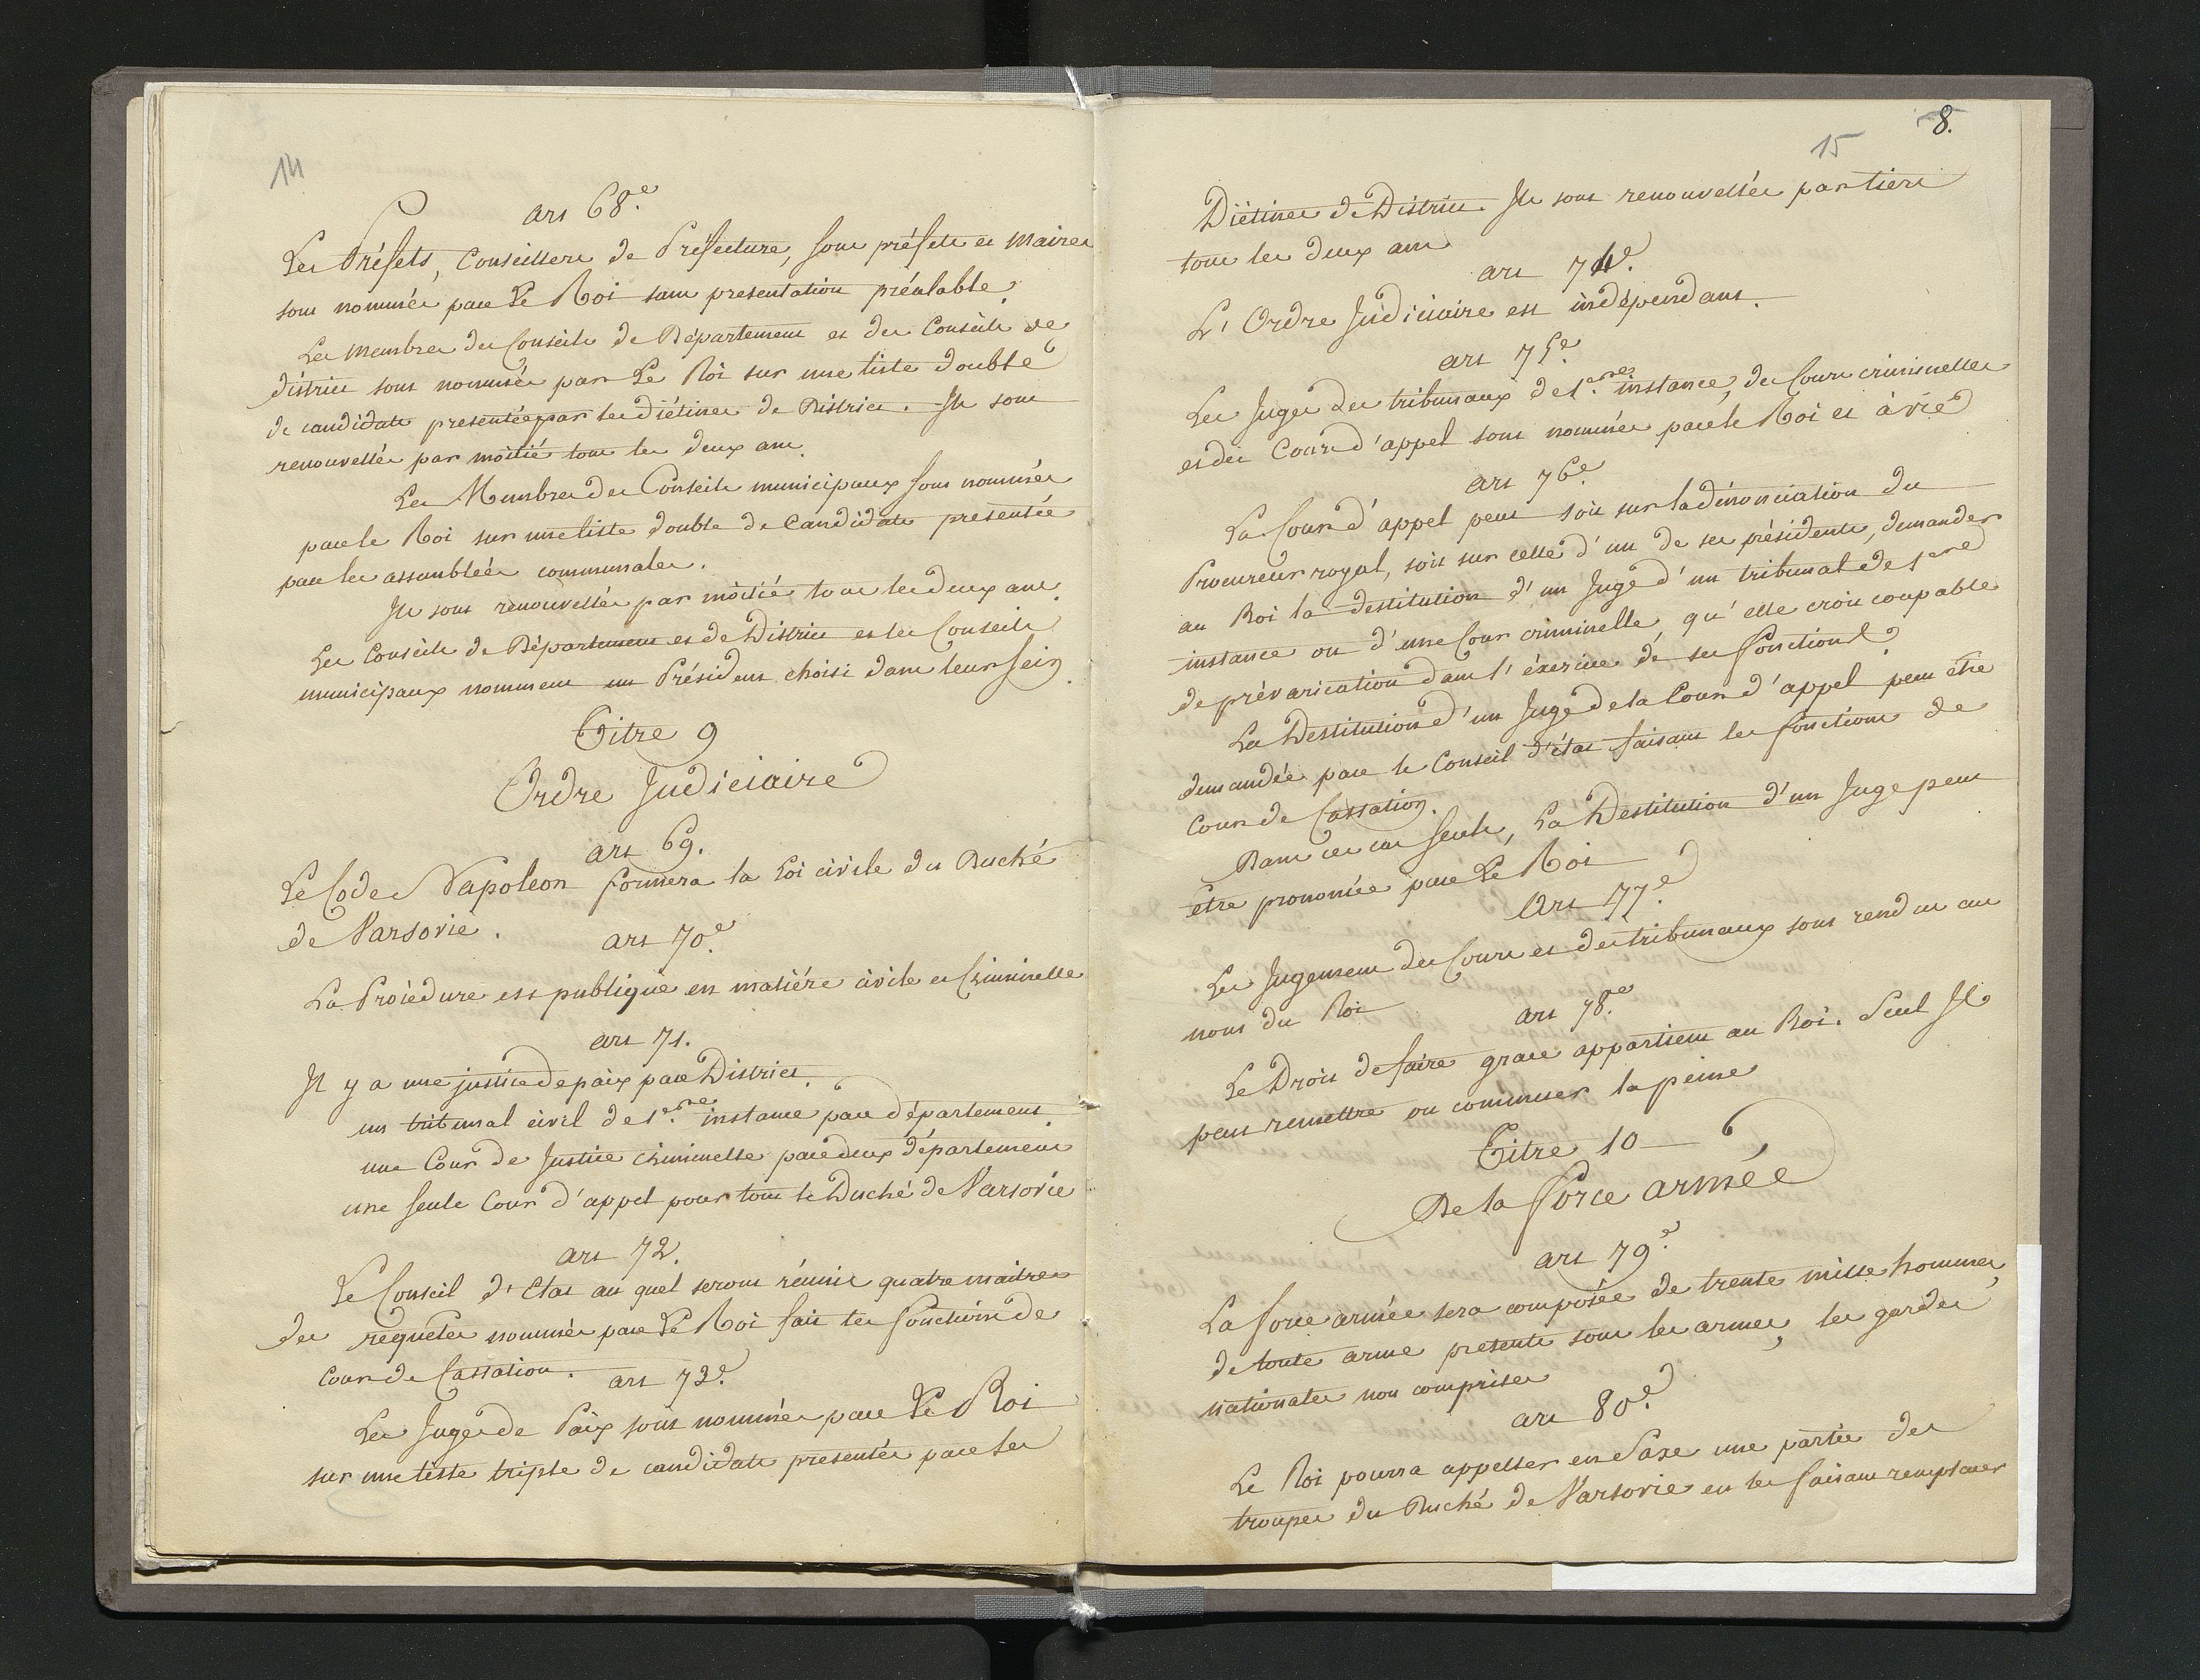 14
art 68.e
Les Préfets, Conseillers de Préfecture, sous préfets et Maires
sont nommés par Le Roi sans presentation préalable.
Les Membres des Conseils de Département et des Conseils de
district sont nommés par Le Roi sur une liste double
de candidats presentée par les diétines de District. Ils sont
renouvellés par moitié tous les deux ans.
Les Membres des Conseils municipaux sont nommés
par le Roi sur une liste double de Candidats presentée
par les assemblées communales.
Ils sont renouvellés par moitié tous les deux ans.
Les Conseils de Département et de District et les Conseils
municipaux nomment un Président choisi dans leur sein.
Titre 9
Ordre Judiciaire
art 69.
Le Code Napoleon formera la Loi civile du Duché
de Varsovie.
art 70.e
La Procédure est publique en matiére civile et Criminelle
art 71.
Il y a une justice de paix par District.
un tribunal civil de 1.ere instance par département
une Cour de Justice criminelle par deux départemens
une seule Cour d'appel pour tout le Duché de Varsovie
art 72.
Le Conseil d'Etat au quel seront réunis quatre maitres
des requetes nommés par Le Roi fait les fonctions de
Cour de Cassation.
art 73.e
Les Juges de Paix sont nommés par Le Roi
sur une liste triple de candidats presentés par les
15
8.
Diétines de District. Ils sont renouvellés par tiers
tous les deux ans
art 74.e
L'Ordre Judiciaire est indépendant.
art 75.e
Les Juges des tribunaux de 1.ere instance, des Cours criminelles
et des Cours d'appel sont nommés par le Roi et à vie
art 76.e
La Cour d'appel peut soit sur la dénonciation du
Procureur royal, soit sur celle d'un de ses présidents, demander
au Roi la destitution d'un Juge d'un tribunal de 1ere
instance ou d'une Cour criminelle, qu'elle croit coupable
de prévarication dans l'éxercice de ses fonctions.
La Destitution d'un Juge de la Cour d'appel peut être
demandée par le Conseil d'état faisant les fonctions de
Cour de Cassation.
Dans ces cas seuls, La Destitution d'un Juge peut
être prononcée par Le Roi
Art 77.e
Les Jugemens des Cours et des tribunaux sont rendus au
nom du Roi
art 78.e
Le Droit de faire grace appartient au Roi. Seul Il
peut remettre ou commuer la peine
Titre 10
De la Force armée
art 79.e
La force armée sera composée de trente mille hommes,
de toute arme presents sous les armes, les gardes
nationales non comprises
art 80.e
Le Roi pourra appeller en Saxe une partie des
troupes du Duché de Varsovie en les faisant remplacer